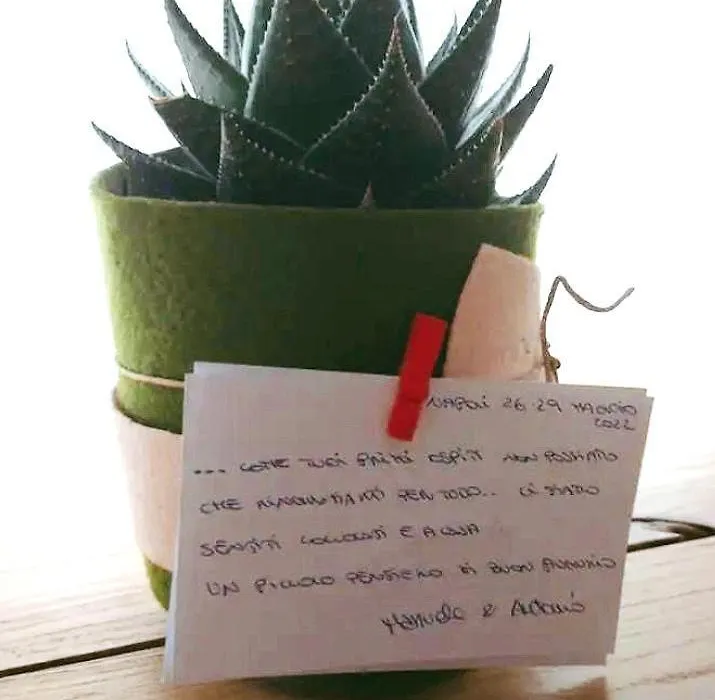 NAPOLI 26-29 MAGGIO
2022
... COME TUOI PRIMI OSPITI NON POSSIAMO
CHE RINGRAZIARTI PER TUTTO.. CI SIAMO
SENTITI COCCOLATI E A CASA
UN PICCOLO PENSIERO DI BUON AUGURIO
Manuela e Antonio